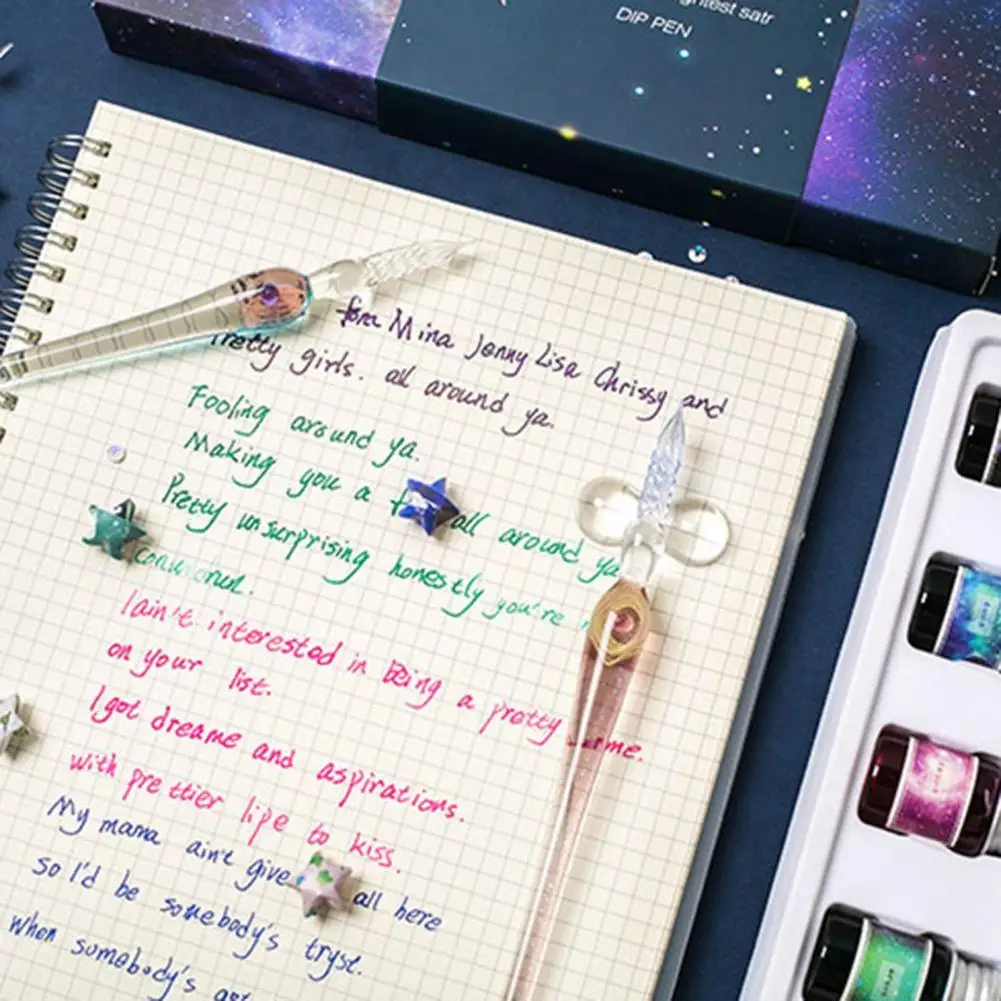 ghtest satr
DIP PEN
Mina Jenny Lisa Chrissy and
Pretty girls. all around ya.
Fooling around ya.
Making you a f all around ya
Pretty unsurprising honestly you're
conundrum.
I ain't interested in being a pretty
on your list.
I got dreame and aspirations.
with prettier lipe to kiss.
My mama ain't give all here
So I'd be somebody's tryst.
when somebody's